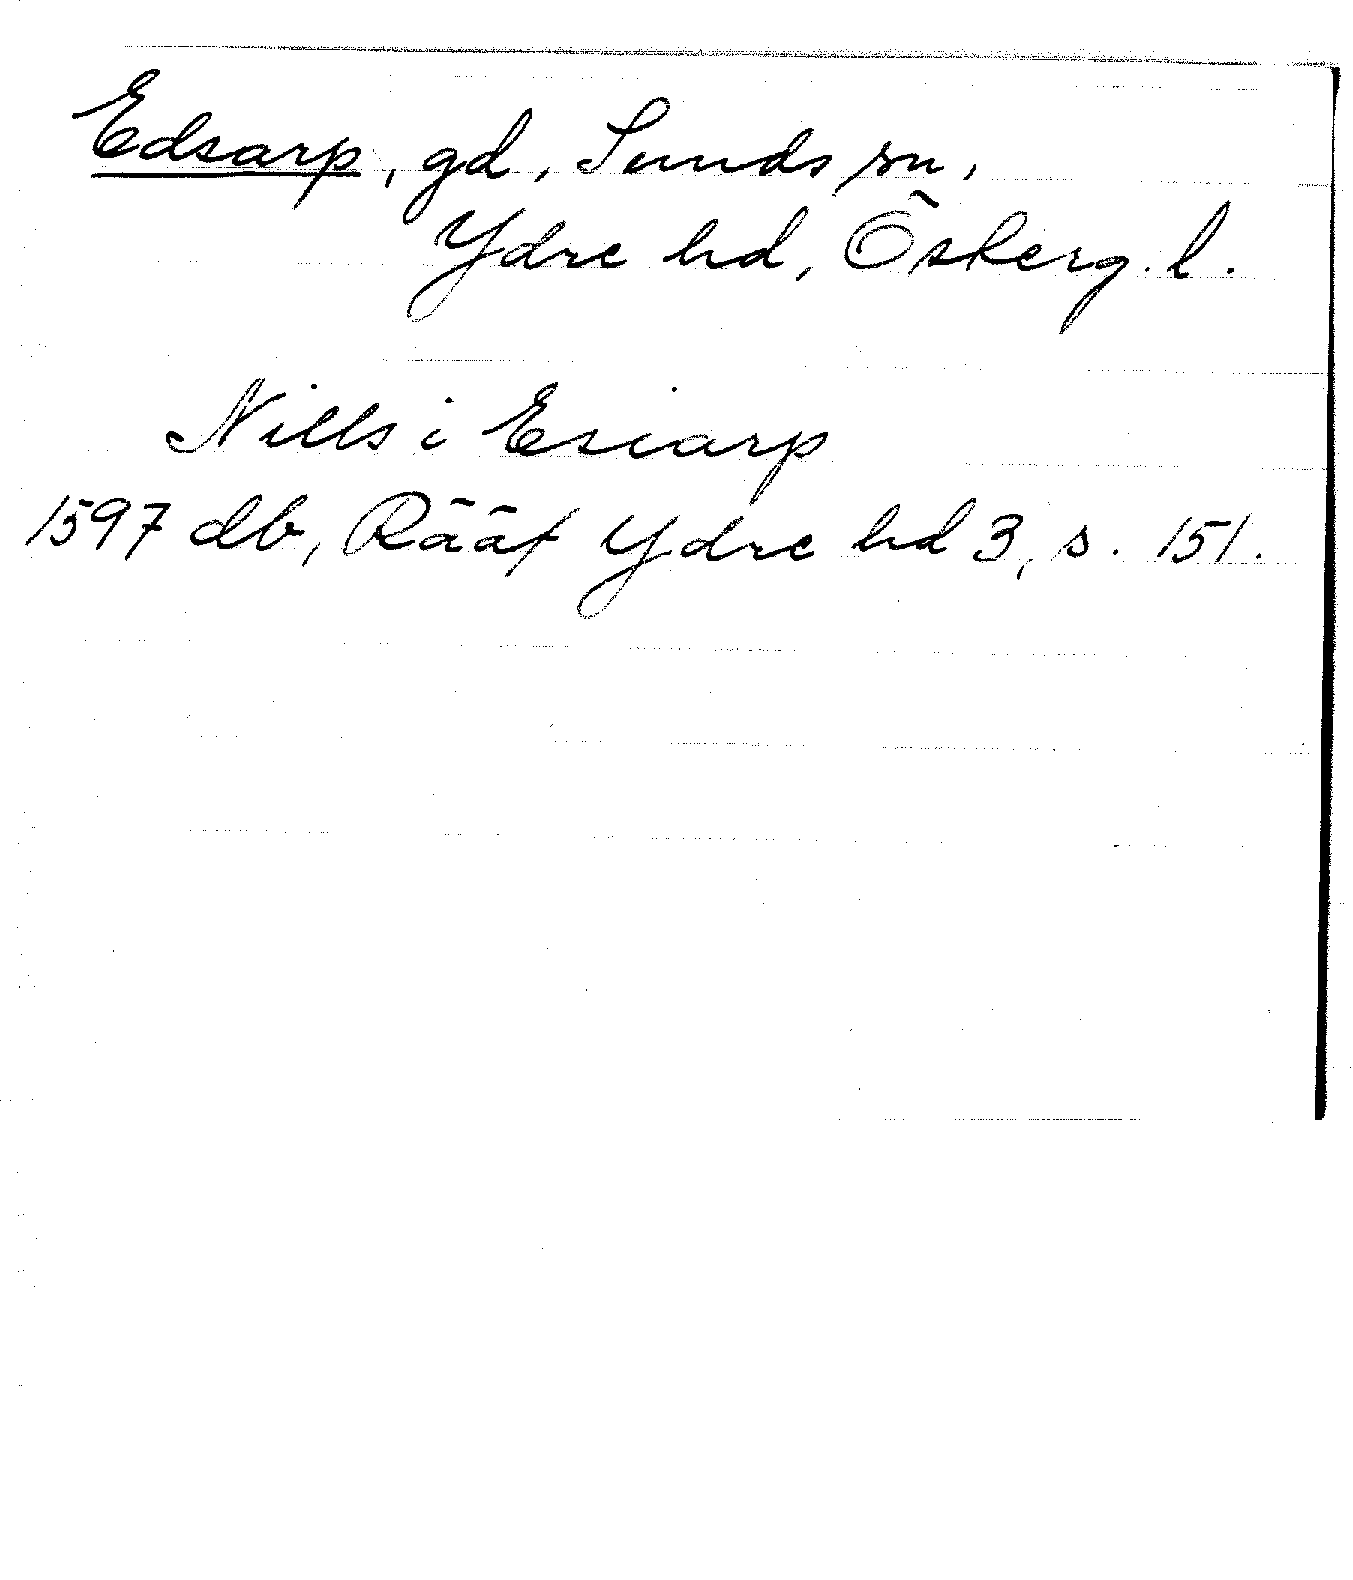 Edsarp, gd, Sunds sn,
Ydre hd, Öskerg. l.
Nills i Esiarp
1597 db, Rääf Ydre hd 3, s. 151.